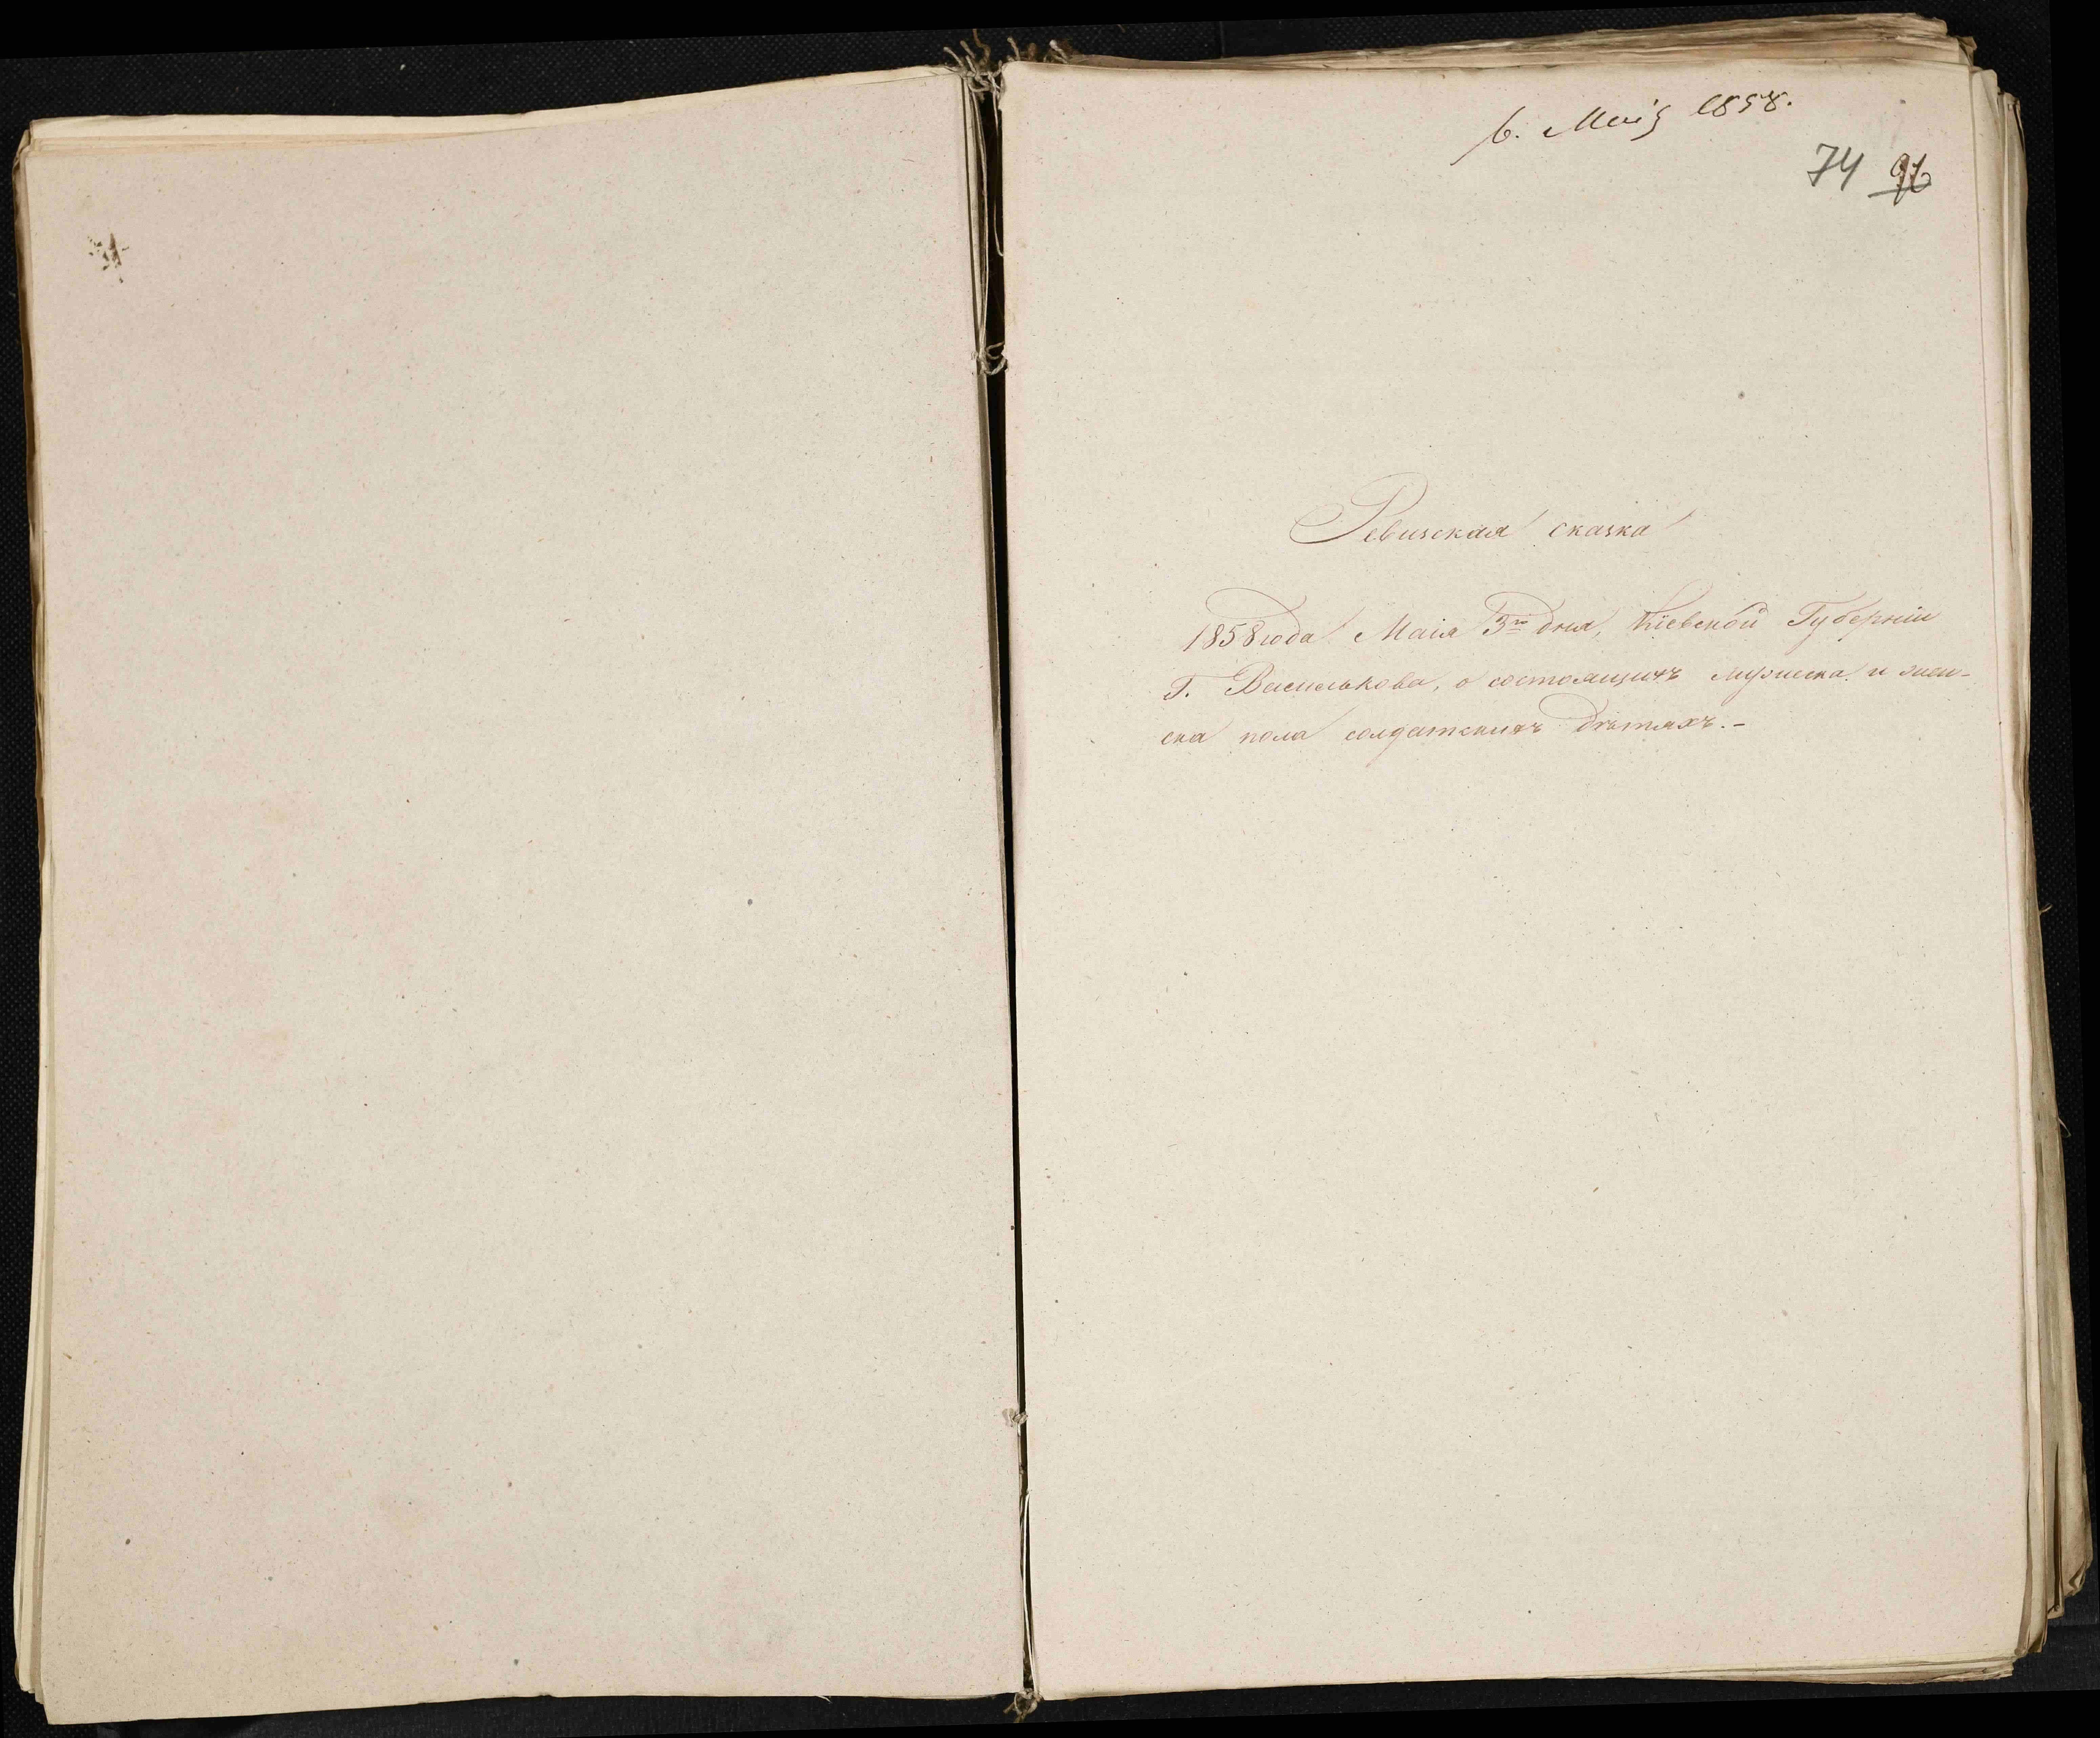 6. Маія 1858.
74 96
Ревизская сказка
1858 года Маія 3го дня, Кіевской Губерніи
Г. Василькова, о состоящихъ мужеска и жен-
ска пола солдатскихъ дѣтяхъ.-